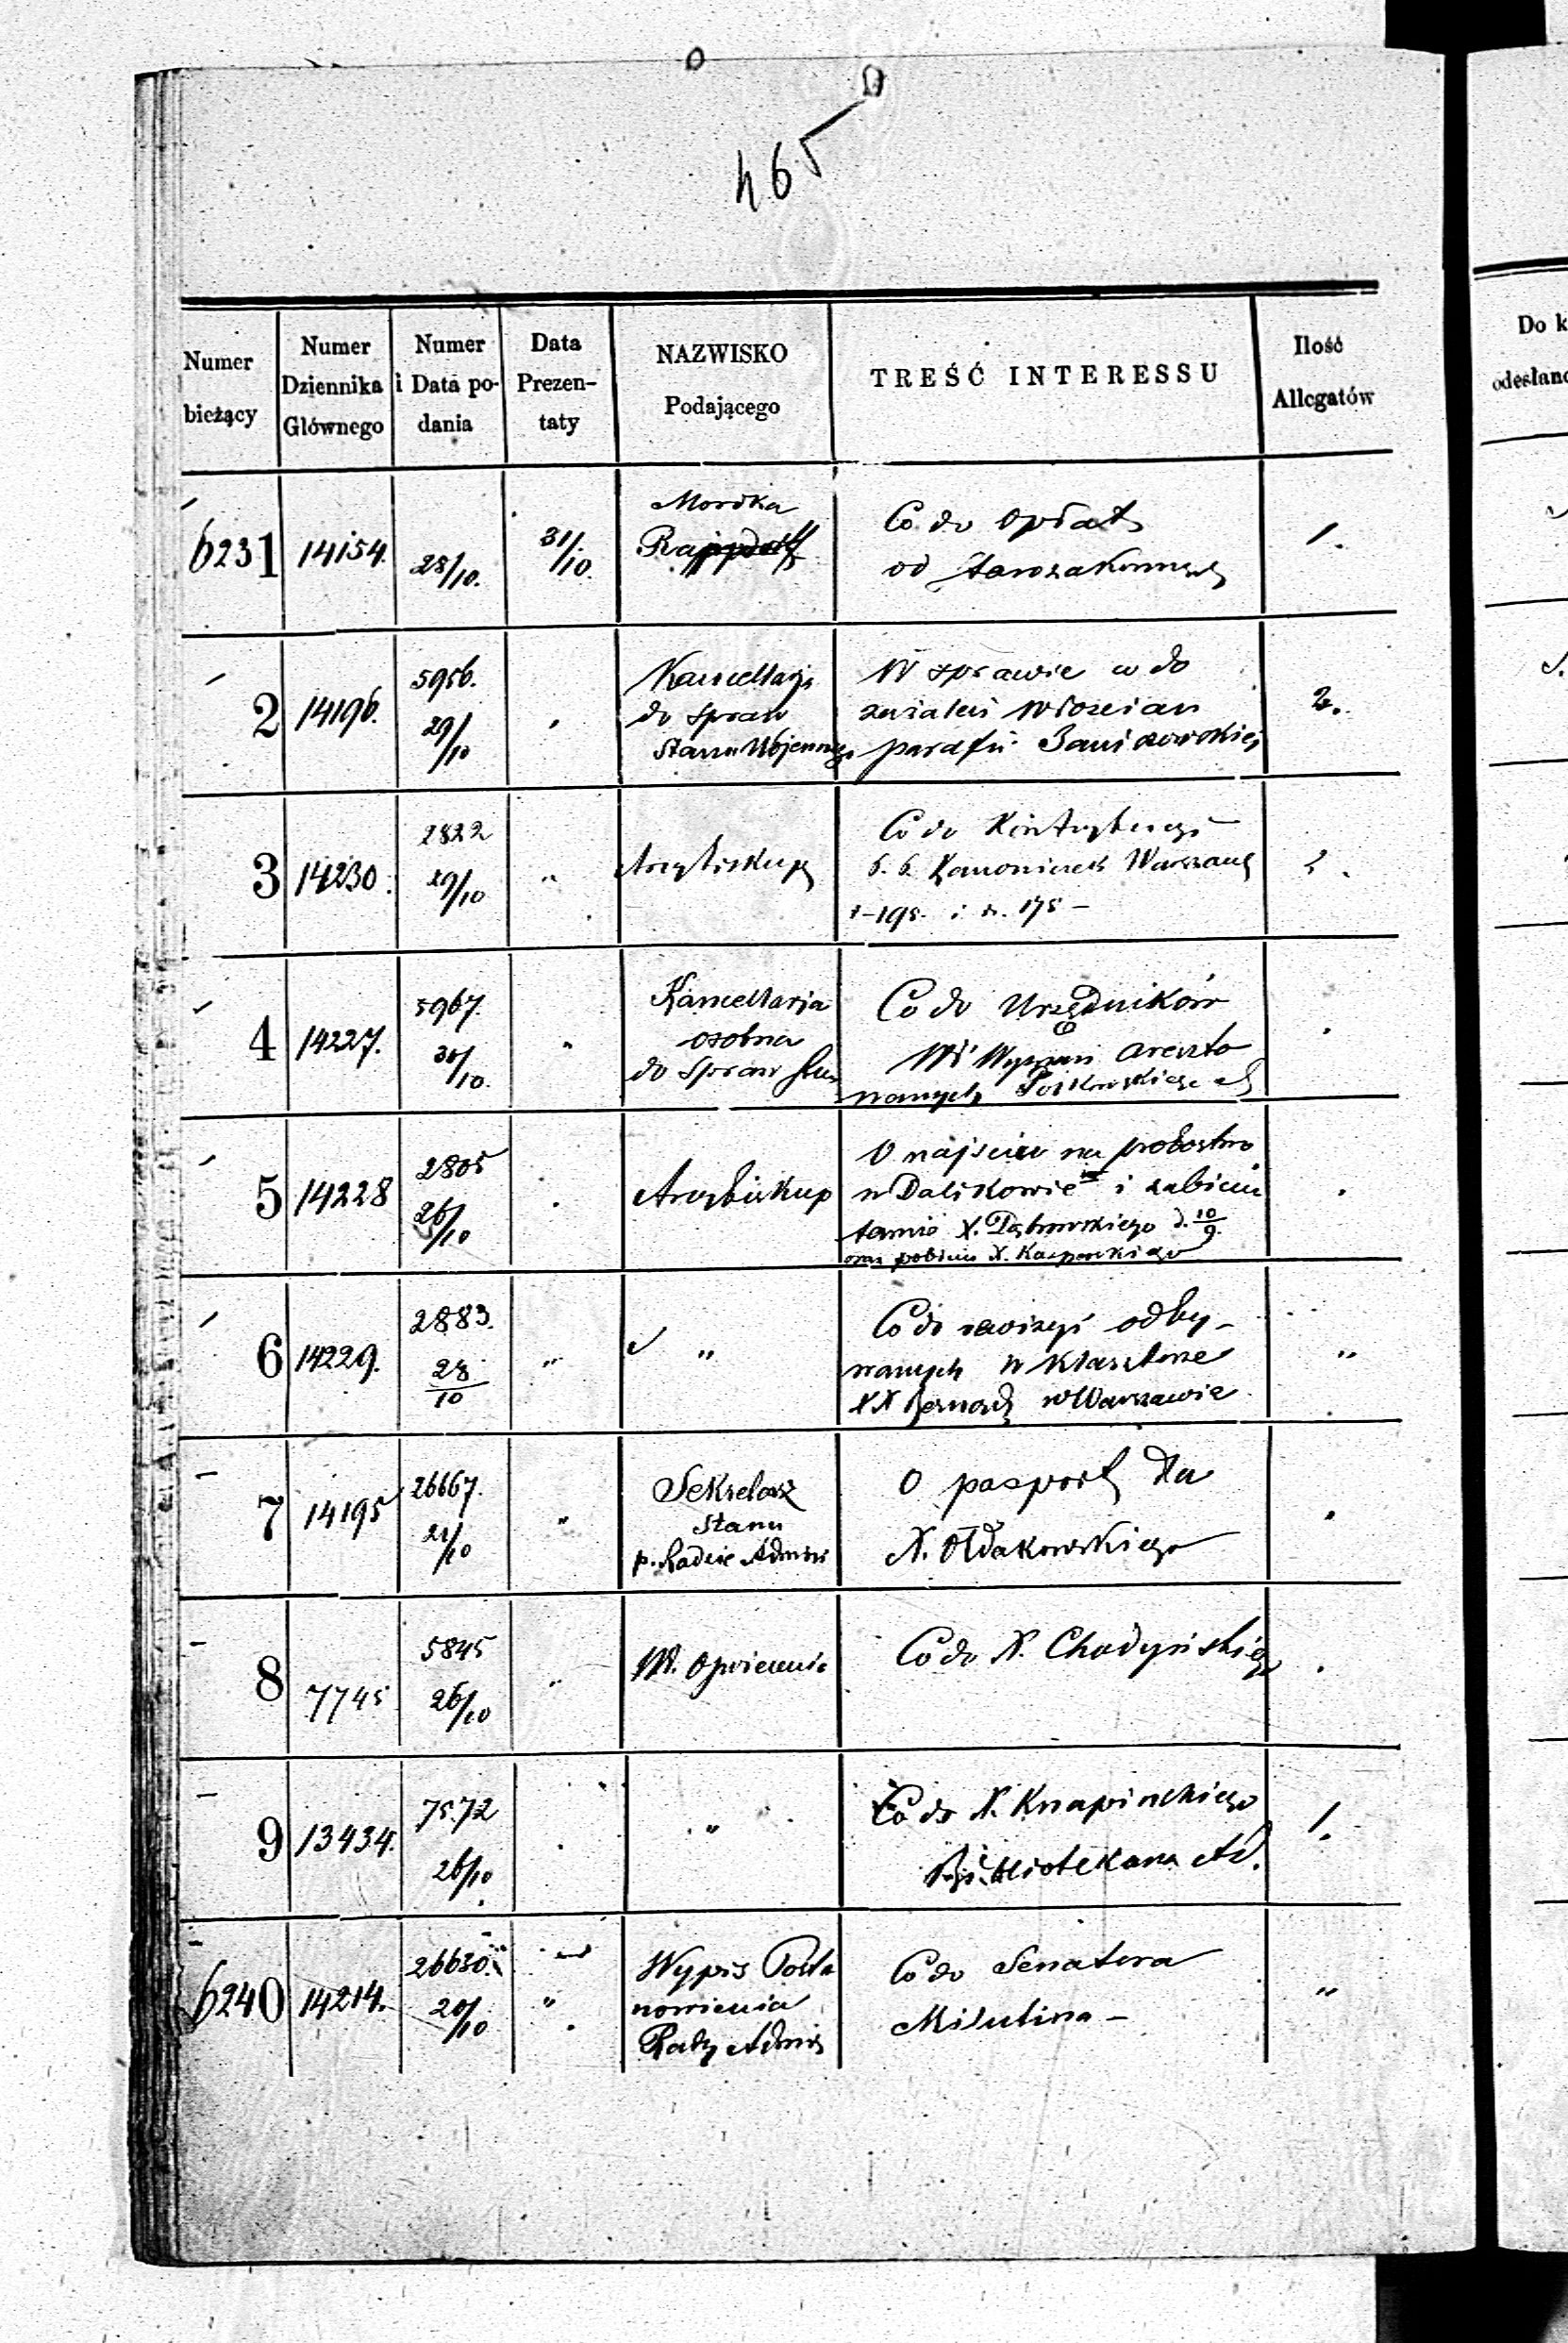 465
Numer bieżący
Numer Dziennika Głównego
Numer i Data podania
Data Prezentaty
NAZWISKO Podającego
TREŚĆ INTERESSU
Ilość Allegatów
Do k
odesłano
6231
14154.
28/10.
31/10.
Mordka
Co do opłat
od starozakonnych
1.
2
14196.
5956.
29/10
Kancellarja
do spraw
Stanu Wojennego
W sprawie co do
zażaleń Włościan
parafii
2.
3
14230.
2822
29/10
"
Arcybiskup
Co do Kontrybucyi
Kanoniczek Warszaws
175 –
2.
4
14227.
5967.
30/10.
"
Kancellarja
osobna
do spraw
Co do Urzędników
W Wyznań areszto
wanych
5
14228
2805
26/10
Arcybiskup
O najściu na probostwo
w Dalikowie i zabiciu
tamże X. Dąbrowskiego d. 10/9.
oraz pobiciu X. Kacprowskiego
6
14229.
2883.
28/10
"
"
Co do rewizyi odby-
wanych w Klasztorze
XX Bernard w Warszawie
"
7
14195
26667.
21/10
"
Sekretarz
Stanu
p. Radzie Admin
O pasport dla
X. Ołdakowskiego
"
8
7745
5845
26/10
"
W. Oświecenia
Co do X. Chodyńskiego
9
13434.
7572
26/10
"
Co do X. Knapińskiego
Bibliotekarza Ad.
1.
6240
14214.
26630.
20/10
"
Wypis Posta
nowienia
Rady Admin
Co do Senatora
Milutina –
"